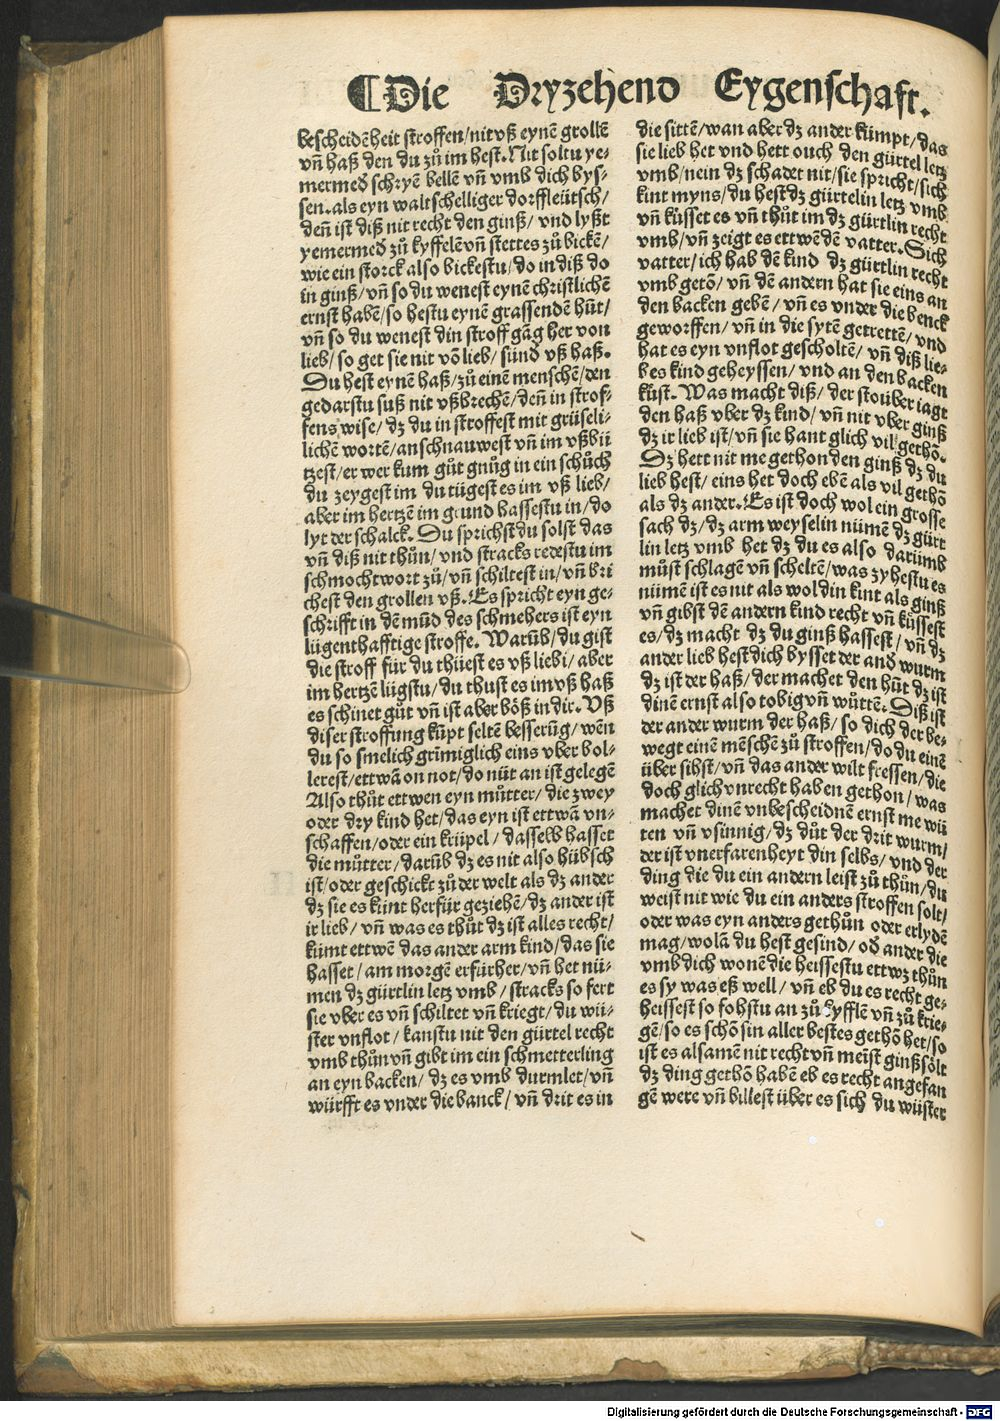 ¶Die Dryzehend Eygenschafft.
bescheidēheit stroffen/nit vß eynē grollē
vn̄ haß den du zů im hest. Nit solt u ye-
mermed schryē bellē vn̄ vmb dich bys-
sen. als eyn waltschelliger dorffleütsch/
den̄ ist diß nit recht den ginß/ vnd lyßt
yemermed zů kyffelē vn̄ stettes zů bickē/
wie ein storck also bickestu/do in diß do
in ginß/ vn̄ so du wenest eynē christlichē
ernst habē/so hestu eynē grassendē hūt/
vn̄ so du wenest din stroff gāg her von
lieb/ so get sie nit vō lieb/ sünd vß haß.
Du hest eynē haß/zů einē menschē/den
gedarstu suß nit vßbrechē/ den̄ in strof-
fens wise/ dz du in stroffest mit grüseli-
lichē wortē/anschnauwest vn̄ im vßbü
tzest/er wer kum gůt gnůg in ein schůch
du zeygest im du tügest es im vß lieb/
aber im hertzē im grund hassestu in/do
lyt der schalck. Du sprichst du solst das
vn̄ diß nit thůn/ vnd stracks redestu im
schmochtwort zů/vn̄ schiltest in/vn̄ bri
chest den grollen vß. Es spricht eyn ge-
schrifft in dē mūd des schmehers ist eyn
lügenthafftige stroffe. Warūb/du gist
die stroff für du thüest es vß liebi/ aber
im hertzē lügstu/du thust es im vß haß
es schinet gůt vn̄ ist aber böß in dir. Vß
diser stroffung kūpt seltē besserūg/wēn
du so smelich grimiglich eins vber bol-
lerest/ettwā on not/do nüt an ist gelegē
Also thůt ettwen eyn můtter/ die zwey
oder dry kind het/das eyn ist ettwā vn-
schaffen/oder ein krüpel/ dasselb hasset
die můtter/darūb dz es nit also hübsch
ist/oder geschickt zů der welt als dz ander
dz sie es künt herfür geziehē/dz ander ist
ir lieb/ vn̄ was es thůt dz ist alles recht/
kümt ettwē das ander arm kind/das sie
hasset/am morgē erfürher/vn̄ het nü-
men dz gürtlin letz vmb/ stracks so fert
sie vber es vn̄ schiltet vn̄ kriegt/du wü-
ster vnflot/ kanstu nit den gürtel recht
vmb thůn vn̄ gibt im ein schmetterling
an eyn backen/ dz es vmb durmlet/vn̄
würfft es vnder die banck/ vn̄ drit es in
die sittē/wan aber dz ander kūmpt/das
sie lieb het vnd hett ouch den gürtel letz
vmb/nein dz schadet nit/sie spricht/sich
kint myns/du hest dz gürtelin letz vmb
vn̄ küsset es vn̄ thůt im dz gürtlin recht
vmb/vn̄ zeigt es ettwē dē vatter. Sich
vatter/ich hab dē kind dz gürtlin recht
vmb getō/ vn̄ dē andern hat sie eins an
den backen gebē/ vn̄ es vnder die benck
geworffen/ vn̄ in die sytē getrettē/ vnd
hat es eyn vnflot gescholtē/ vn̄ diß lie-
bes kind geheyssen/ vnd an den backen
küst. Was macht diß/ der stouber iagt
den haß vber dz kind/ vn̄ nit vber ginß
dz ir lieb ist/vn̄ sie hant glich vil gethō.
Dz hett nit me gethon den ginß dz du
lieb hest/ eins het doch ebē als vil gethō
als dz ander. Es ist doch wol ein grosse
sach dz/dz arm weyselin nümē dz gürt
lin letz vmb het dz du es also darūmb
můst schlagē vn̄ scheltē/was zyhestu es
nümē ist es nit als wol din kint als ginß
vn̄ gibst dē andern kind recht vn̄ küssest
es/dz macht dz du ginß hassest/ vn̄ dz
ander lieb hest dich bysset der and wurm
dz ist der haß/ der machet den hūt dz ist
dinē ernst also tobig vn̄ wūttē. Diß ist
der ander wurm der haß/ so dich der be-
wegt einē mēschē zů stroffen/do du einē
über sihst/vn̄ das ander wilt fressen/die
doch glich vnrecht haben gethon/was
machet dinē vnbescheidnē ernst me wü
ten vn̄ vsinnig/dz dūt der drit wurm/
der ist vnerfarenheyt din selbs/ vnd der
ding die du ein andern leist zů thůn/du
weist nit wie du ein anders stroffen solt/
oder was eyn anders gethůn oder erlydē
mag/wolā du hest gesind/ od ander die
vmb dich wonē die heissestu ettwz thůn
es sy was eß well/ vn̄ eb du es recht ge-
heissest so fohstu an zů kyfflē vn̄ zů krie-
gē/so es schō sin aller bestes gethō het/so
ist es alsamē nit recht vn̄ meīst ginß sölt
dz ding gethō habē eb es recht angefan
gē were vn̄ billest über es sich du wüster
Digitalisierung gefördert durch die Deutsche Forschungsgemeinschaft - DFG